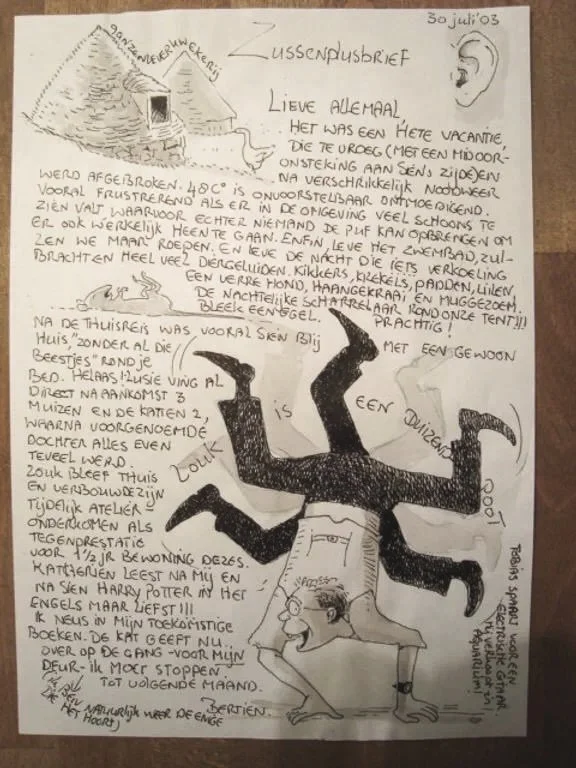 30 juli '03
ganzenleverkwekerij
Zussenplusbrief
Lieve allemaal,
Het was een hete vacantie,
die te vroeg (met een midoor-
onsteking aan Sien's zijde) en
na verschrikkelijk noodweer
werd afgebroken. 48 C° is onvoorstelbaar ontmoedigend.
Vooral frustrerend als er in de omgeving veel schoons te
zien valt waarvoor echter niemand de puf kan opbrengen om
er ook werkelijk heen te gaan. Enfin, leve het zwembad, zul-
len we maar roepen. En leve de nacht die iets verkoeling
bracht en heel veel diergeluiden. Kikkers, krekels, padden, uilen,
een verre hond, haangekraai en muggezoem.
De nachtelijke scharrelaar rond onze tent!!!
bleek een egel. Prachtig!
Na de thuisreis was vooral Sien blij met een gewoon
huis, "zonder al die
beestjes" rond je
bed. Helaas! Lusie ving al
direct na aankomst 3
muizen en de katten 2,
waarna voorgenoemde
dochter alles even
teveel werd.
Louk bleef thuis
en verbouwde zijn
tijdelijk atelier
onderkomen als
tegenprestatie
voor 1 1/2 jr bewoning dezes.
Katherien leest na mij en
na Sien Harry Potter in het
Engels maar liefst!!!
Ik neus in mijn toekomstige
boeken. De kat geeft nu
over op de gang - voor mijn
deur - ik moet stoppen.
Tot volgende maand.
Bertien.
natuurlijk weer de enge
die het hoort)
Louk is een duizendpoot
Tobias spaart voor een
electrische gitaar
en verkoopt zijn
aquarium!